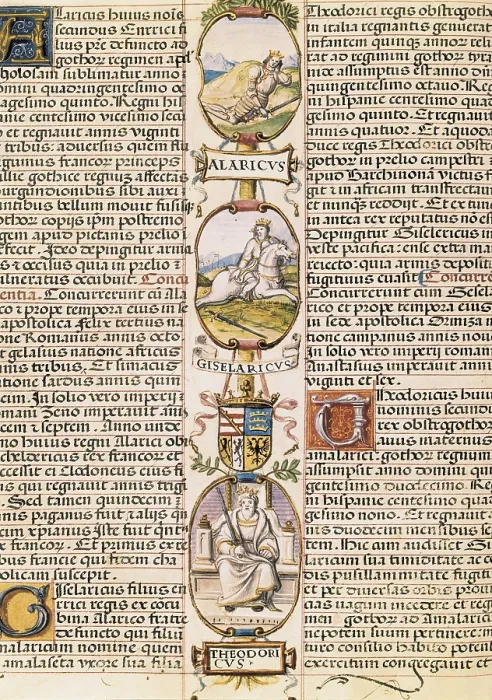 Alaricus huius noīs
secundus Enrrici fi
lius p̄re defuncto ad
gothor̄ regimen apd̄
tholosam sublimatur anno
mini quadringentesimo oc
agesimo quinto. Regni hi
nie centesimo vigesimo sec
o et regnauit annis viginti
tribus: aduersus quem flu
francor̄ princeps
lie gothice regnū affecta
burgundionibus sibi auxi
antibus bellum mouit
othor̄ copijs ip̄m postremo
gem apud pictauis prelio
fecit. Ideo depingitur arma
s & occisus quia in prelio
uulneratus occubuit. Concu
entia. Concurrerunt cū Ala
co & prope tempora eius in se
apostolica Felix tertius na
one Romanus annis octo
t gelasius natione africus
nis tribus. Et simacus
tione sardus annis quin
cim. In solo vero imperij
mani Zeno imperauit an
m & septem. Anno
no huius regni Alarici ob
childericus rex francor̄ et
ccessit ei Clodoneus eius fi
us qui regnauit annis trig
. Sed tamen quindecim
nis paganus fuit, alijs
cim xpianus Iste fuit quīt
x francor̄. Et primus ex re
bus francie qui fidem cha
olicam suscepit.
Giselaricus filius en
rrici regis ex cōcu
bina Alarico fratre
defuncto qui filiū
malaricum nomine quem
amalaseta vxore sua fili
ALARICVS
GISELARICVS
THEODORI
CVS
Theodorici regis obstrogoth
in italia regnantis genuerat
infantem quinq̄ annor̄ reli
rat ad regimen gothor̄
nie assumptus est anno dm̄
quingentesimo octauo. Reg
ni hispanie centesimo qua
gesimo quinto. Et regnaui
annis quatuor. Et
duce regis Theodorici obstr
gothor̄ in prelio campestri
apud Barchinonā victus f
git & in africam transfretau
et nunq̄ redijt. Et ex tun
in antea rex reputatus nō es
Depingitur Giselericus in
veste pacifica: ense extra ma
eiecto: quia armis depositi
fugitiuus euasit. Concurre
Concurrerunt cum Gisela
rico et prope tempora eius
in sede apostolica Ormiza n
tione campanus annis nouē
In solio vero imperij romani
Anastasius imperauit anni
viginti et sex.
Theodoricus huius
nominis secundu
rex obstrogothor̄
auus maternus
amalarici: gothor̄ regnum
assumpsit anno domini quī
gentesimo duodecimo. Regn
ni hispanie centesimo qua
gesimo nono. Et regnauit
nis duodecim mensibus se
tem. Hic cum audisset Gi
laricum sua timiditate ac co
dis pusillanimitate fugiti
et per diuersas orbis prouī
cias vagum incedere et regn
men gothor̄ ad Amalaricum
nepotem suum pertinere.
turo consilio habito poten
exercitum congregauit et